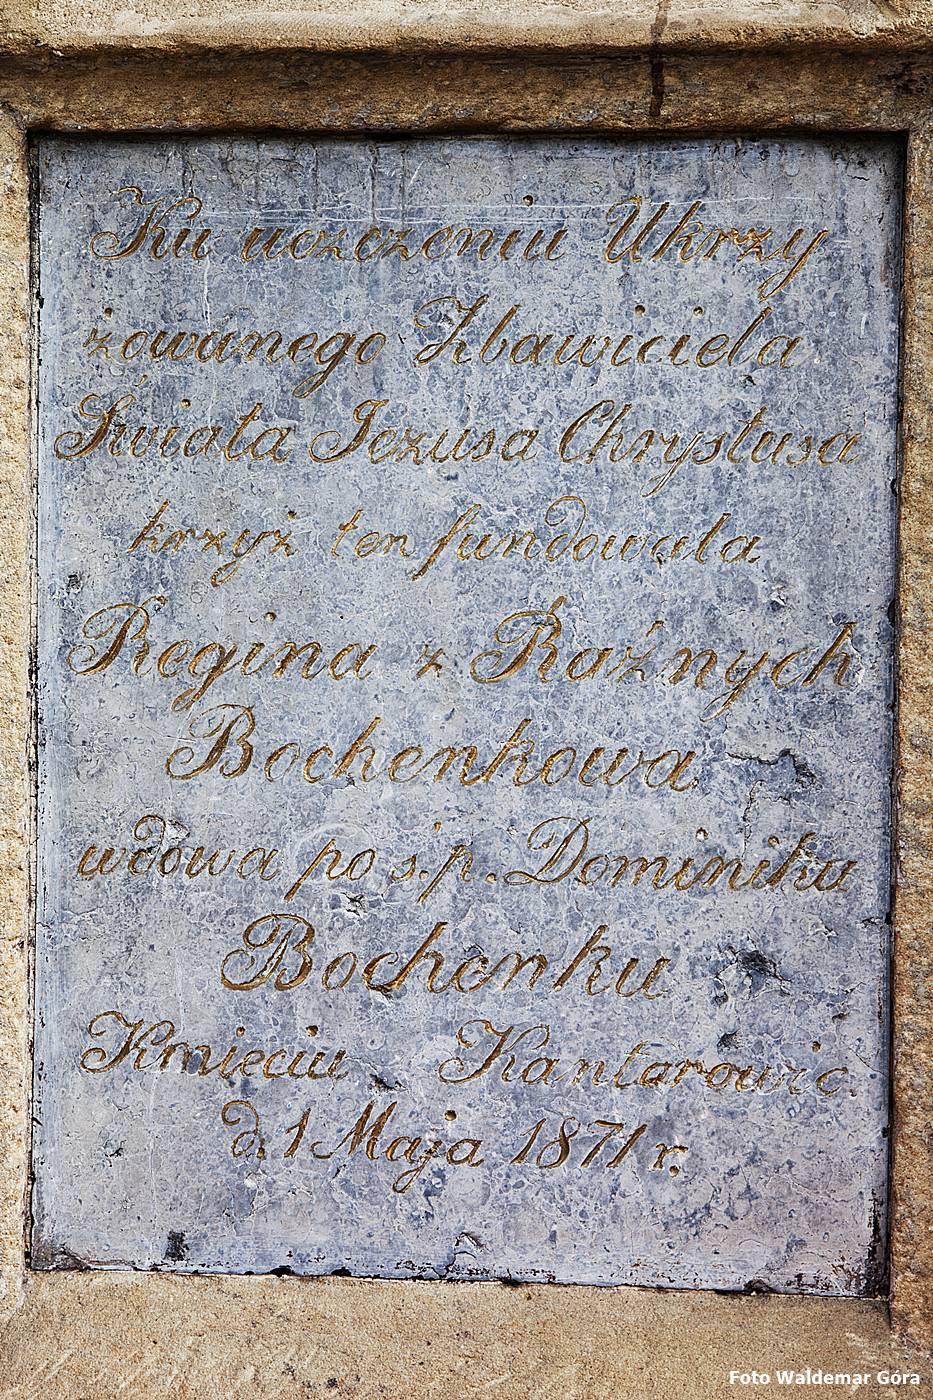 Ku uczczeniu Ukrzy
żowanego Zbawiciela
Świata Jezusa Chrystusa
krzyż ten fundowała
Regina z Raźnych
Bochenkowa
wdowa po s.p. Dominiku
Bochenku
Kmieciu Kantarowic.
d. 1 Maja 1871 r.
Foto Waldemar Góra